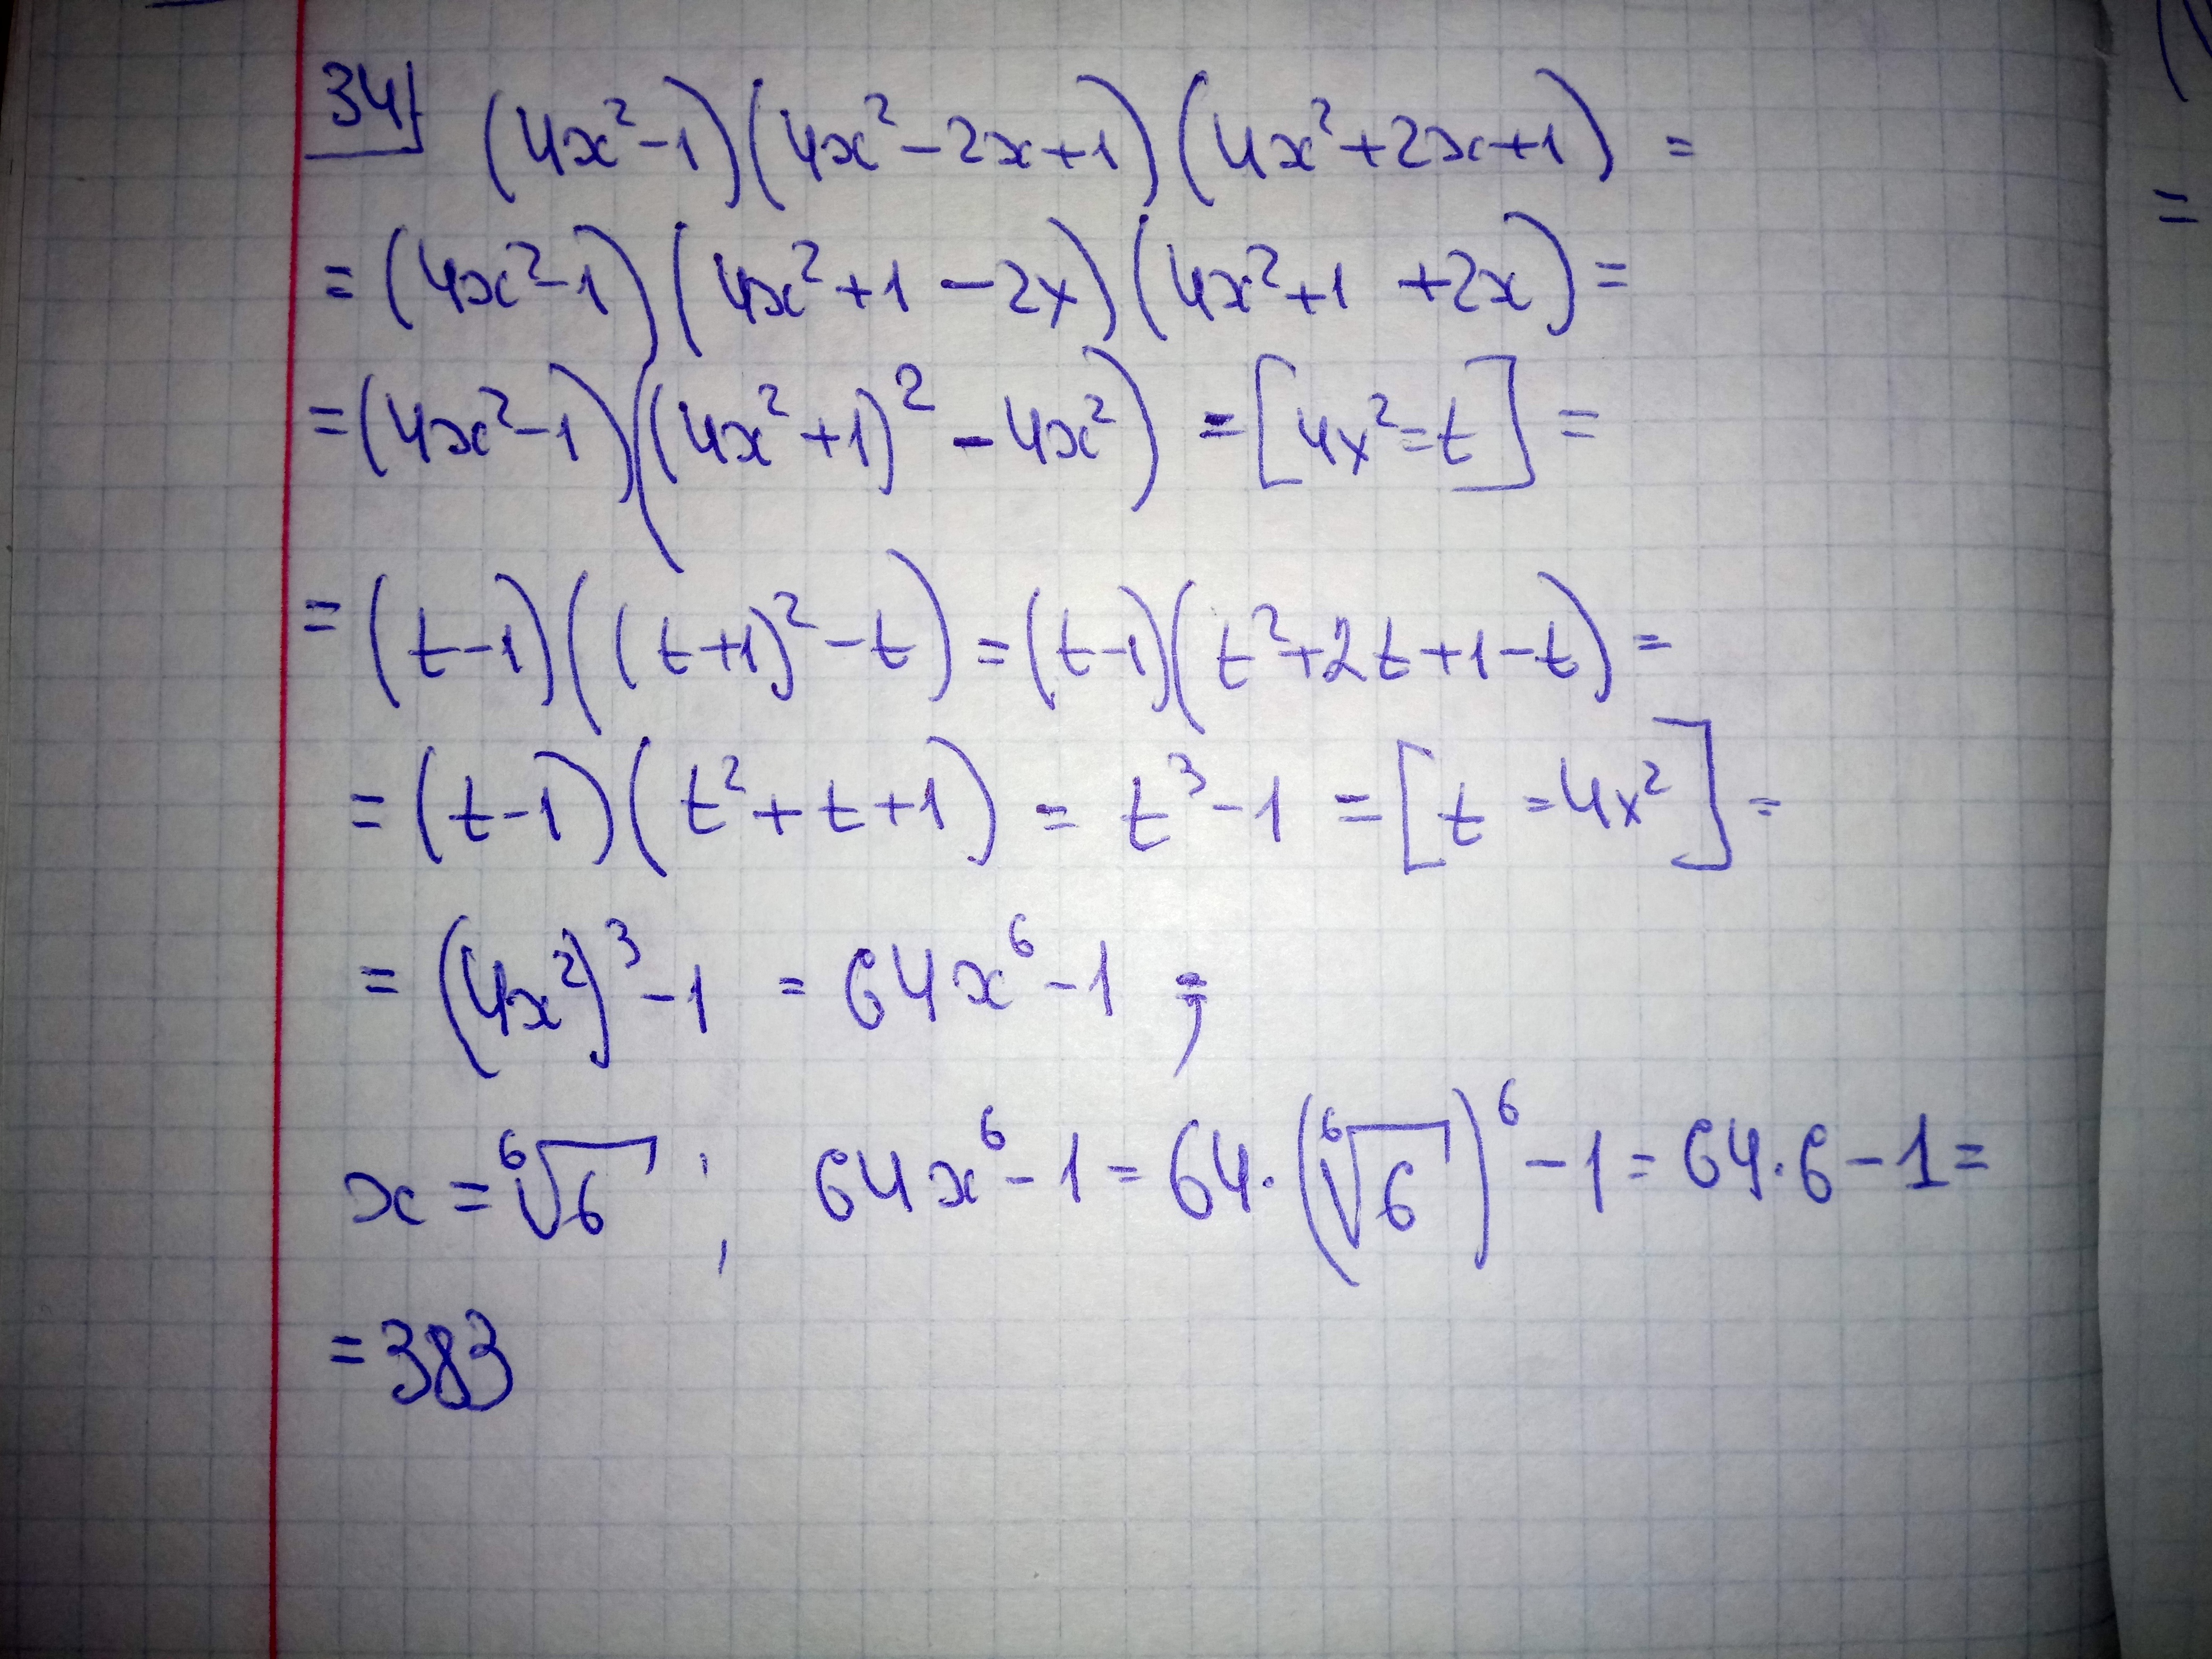 34) (4x²-1)(4x²-2x+1)(4x²+2x+1) =
= (4x²-1)(4x²+1 -2x)(4x²+1 +2x) =
= (4x²-1)((4x²+1)² - 4x²) = [4x²=t] =
= (t-1)((t+1)² - t) = (t-1)(t²+2t+1-t) =
= (t-1)(t²+t+1) = t³-1 = [t = 4x²] =
= (4x²)³-1 = 64x⁶-1 ;
x = ⁶√6 ; 64x⁶-1 = 64·(⁶√6)⁶-1 = 64·6-1 =
= 383
=